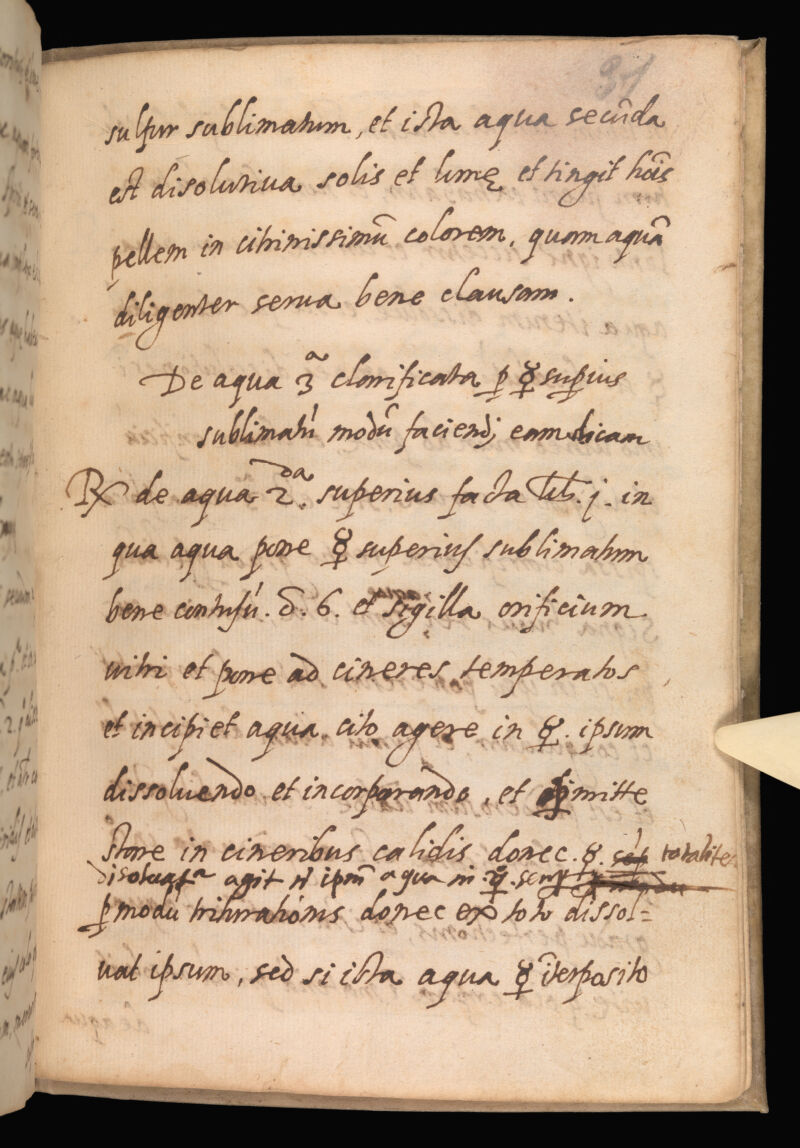 31
sulfur sublimatum, et ista aqua secūda
est disolutiua solis et lunę et tingit hoīs
pellem in citrinissimū colorem, quam aquā
diligenter serua bene clausam.
De aqua 3ª clarificata p ☿ supius
sublimatū modū faciendj eam dicam
℞ de aqua 2.da superius facta lib. j. in
qua aqua pone ☿ superius sublimatum
bene contusū. 6. et sigilla orificium
uitri et pone ad cineres temperatos
et incipiet aqua cito agere in ☿. ipsum
dissoluendo et incorporando, et pmitte
stare in cineribus calidis donec ☿. totaliter
agit ī ipm̄ aqua in ☿.
p modū triturationis donec ex toto dissol=
uat ipsum, sed si ista aqua ☿ īterposito